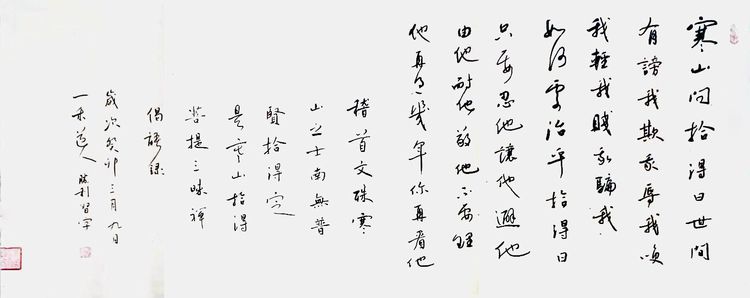 寒山問拾得曰世間
有謗我欺我辱我
我輕我賤我騙我
如何處治乎拾得曰
只要忍他讓他避他
由他耐他敬他不要理
他再幾年你再看他
稽首文殊寒
山之士南無普
賢拾得定
是寒山拾得
提三昧禪
偈語録
歲次癸卯三月九日
一道人勝利習字